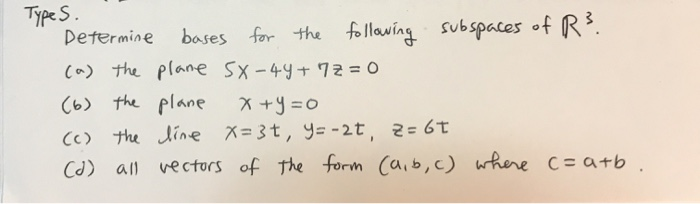 Type S.
Determine bases for the following subspaces of ℝ³.
(a) the plane 5x - 4y + 7z = 0
(b) the plane x + y = 0
(c) the line x = 3t, y = -2t, z = 6t
(d) all vectors of the form (a, b, c) where c = a + b.